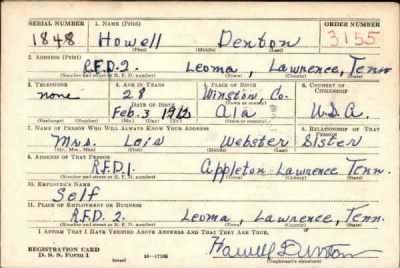 SERIAL NUMBER 1. NAME (Print) ORDER NUMBER
1848 Howell Denton 3155
(First) (Middle) (Last)
2. ADDRESS (Print)
R.F.D. 2. Leoma, Lawrence, Tenn
(Number and street or R. F. D. number) (Town) (County) (State)
3. TELEPHONE 4. AGE IN YEARS 5. PLACE OF BIRTH 6. COUNTRY OF CITIZENSHIP
none 28 Winston, Co.
DATE OF BIRTH (Town or county)
Feb. 3 1912 Ala U.S.A.
(Exchange) (Number) (Mo.) (Day) (Yr.) (State or country)
7. NAME OF PERSON WHO WILL ALWAYS KNOW YOUR ADDRESS 8. RELATIONSHIP OF THAT PERSON
Mrs. Lois Webster Sister
(Mr., Mrs., Miss) (First) (Middle) (Last)
9. ADDRESS OF THAT PERSON
R.F.D. 1. Appleton Lawrence Tenn.
(Number and street or R. F. D. number) (Town) (County) (State)
10. EMPLOYER'S NAME
Self
11. PLACE OF EMPLOYMENT OR BUSINESS
R.F.D. 2. Leoma, Lawrence, Tenn.
(Number and street or R. F. D. number) (Town) (County) (State)
I AFFIRM THAT I HAVE VERIFIED ABOVE ANSWERS AND THAT THEY ARE TRUE.
REGISTRATION CARD
D. S. S. Form 1 (over) 16-17105 (Registrant's signature)